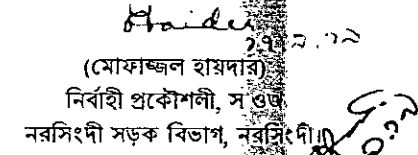 Haider
(মোফাজ্জল হায়দার)
নির্বাহী প্রকৌশলী, স ওজ
নরসিংদী সড়ক বিভাগ, নরসিংদী।